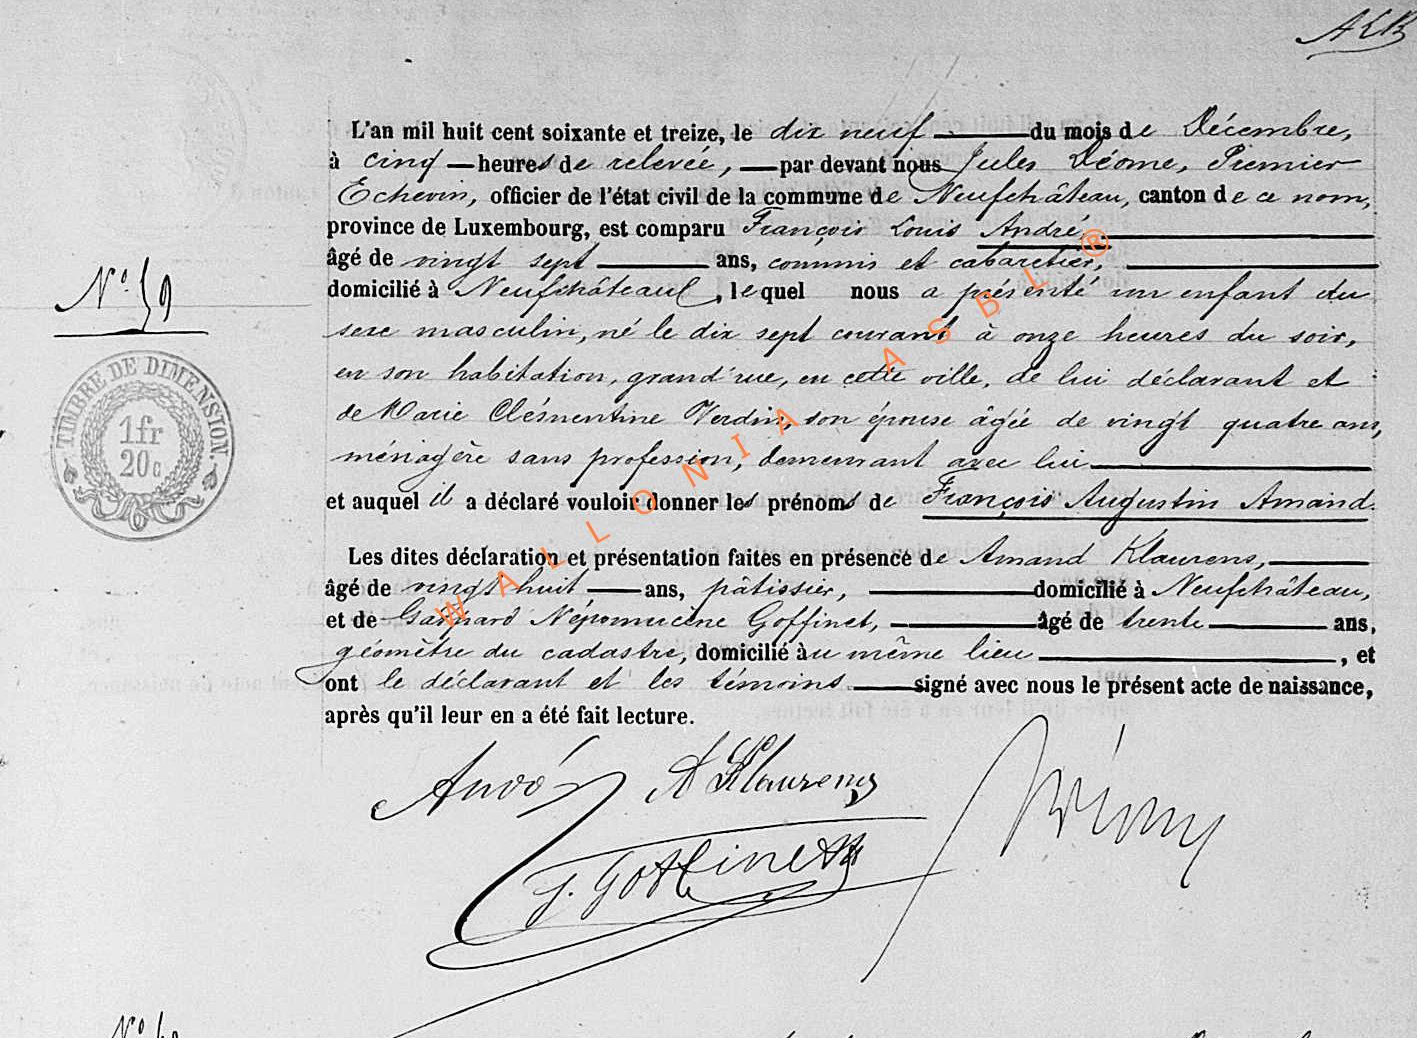 L'an mil huit cent soixante et treize, le dix neuf du mois de Décembre,
à cinq heures de relevée, par devant nous Jules Déome, Premier
Echevin, officier de l'état civil de la commune de Neufchâteau, canton de ce nom,
province de Luxembourg, est comparu François Louis André,
âgé de vingt sept ans, commis et cabaretier,
domicilié à Neufchâteau, lequel nous a présenté un enfant du
sexe masculin, né le dix sept courant à onze heures du soir,
en son habitation, grand'rue, en cette ville, de lui déclarant et
de Marie Clémentine Verdin, son épouse âgée de vingt quatre ans,
ménagère sans profession, demeurant avec lui
et auquel il a déclaré vouloir donner les prénoms de François Augustin Amand.
Les dites déclaration et présentation faites en présence de Amand Klaurens,
âgé de vingt huit ans, pâtissier, domicilié à Neufchâteau,
et de Népomucène Goffinet, âgé de trente ans,
géomètre du cadastre, domicilié au même lieu, et
ont le déclarant et les témoins signé avec nous le présent acte de naissance,
après qu'il leur en a été fait lecture.
N° 59
TIMBRE DE DIMENSION
1fr
20c
André A Klaurens
J. Goffinet
WALLONIA ASBL ®